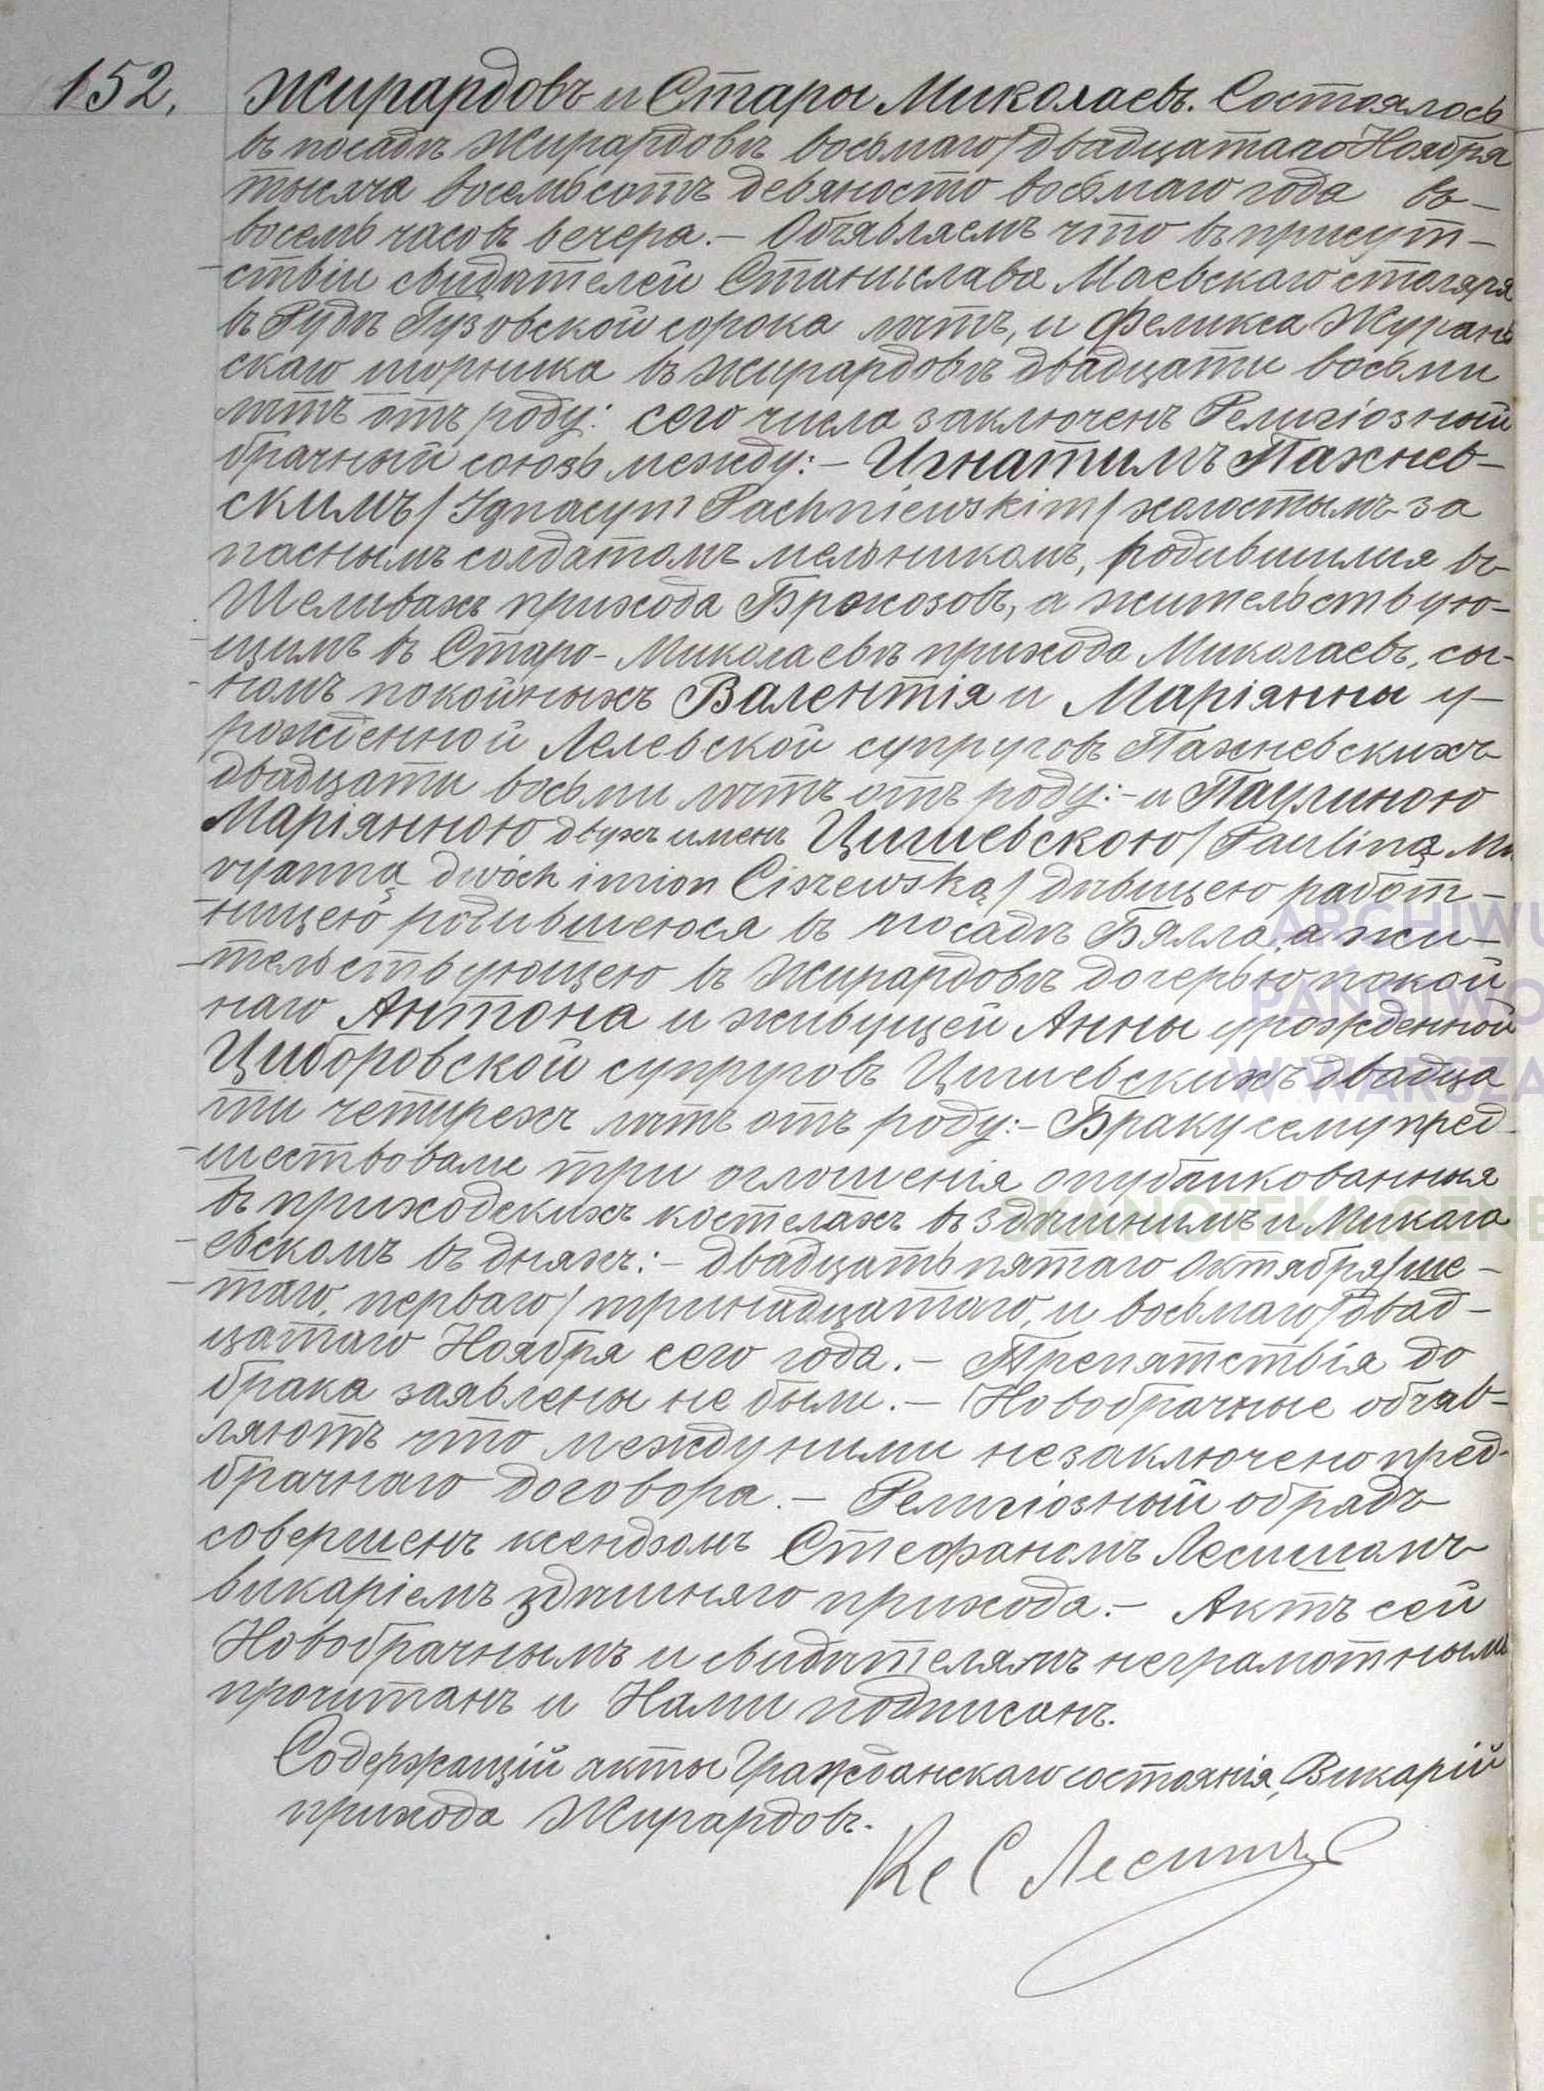 152. Жирардовъ и Стары Миколаевъ. Состоялось
въ посадѣ Жирардовѣ восьмаго/двадцатаго Ноября
тысяча восемьсотъ девяносто восьмаго года въ
восемь часовъ вечера. – Объявляемъ что въ присут-
ствіи свидѣтелей Станислава Маевскаго столяра
въ Рудѣ Гузовской сорока лѣтъ, и Феликса Журань
скаго шорника въ Жирардовѣ двадцати восьми
лѣтъ отъ роду: сего числа заключенъ Религіозный
брачный союзъ между: – Игнатимъ Пахнев-
скимъ / Ignacym Pachniewskim / холостымъ за
паснымъ солдатомъ мельникомъ, родившимся въ
Шеливахъ прихода Бржозовъ, а жительствую-
щимъ въ Старо-Миколаевѣ прихода Миколаевъ, сы-
номъ покойныхъ Валентія и Маріянны у-
рожденной Лелевской супруговъ Пахневскихъ
двадцати восьми лѣтъ отъ роду: – и Паулиною
Маріянною двухъ именъ Цишевскою / Pauliną Ma
ryanną dwóch imion Ciszewską / дѣвицею работ-
ницею родившеюся въ посадѣ Бялла, а жи-
тельствующею въ Жирардовѣ дочерью покой
наго Антона и живущей Анны урожденной
Циборовской супруговъ Цишевскихъ двадца
ти четырехъ лѣтъ отъ роду: – Браку сему пред-
шествовали три оглошенія опубликованныя
въ приходскихъ костелахъ въ здѣшнимъ и Микола
евскомъ въ дняхъ: – двадцать пятаго Октября/ше-
таго, перваго/тринадцатаго, и восьмаго/двад-
цатаго Ноября сего года. – Препятствія до
брака заявлены не были. – Новобрачные объяв-
ляютъ что между ними незаключено пред-
брачнаго договора. – Религіозный обрядъ
совершенъ ксендзомъ Стефаномъ
викаріемъ здѣшняго прихода. – Актъ сей
Новобрачнымъ и свидѣтелямъ неграмотнымъ
прочитанъ и Нами подписанъ.
Содержащій акты Гражданскаго состоянія, Викарій
прихода Жирардовъ.
Кс С
ARCHIWU
PAŃSTWO
W WARSZA
SKANOTEKA GENE